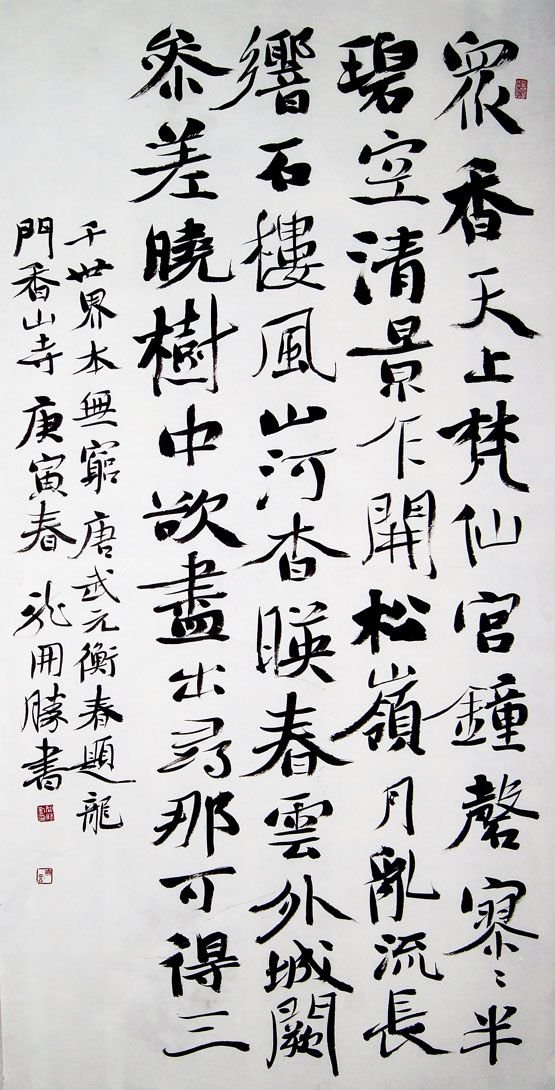 眾香天上梵仙宮鐘磬寥〻半
碧空清景乍開松嶺月亂流長
響石樓風山河杳暎春雲外城闕
參差曉樹中欲盡出尋那可得三
千世界本無窮唐武元衡春題龍
門香山寺庚寅春龙開勝書